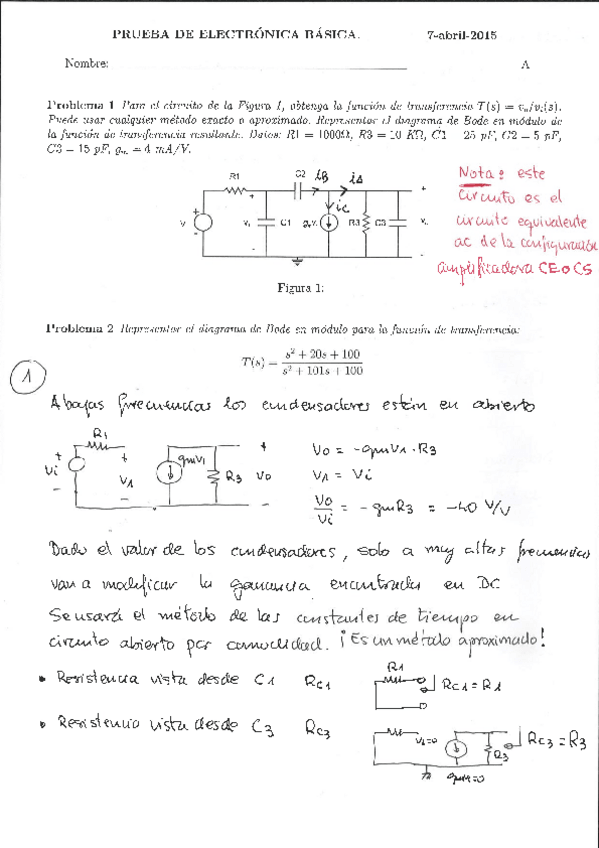 PRUEBA DE ELECTRÓNICA BÁSICA. 7-abril-2015
Nombre: A
Problema 1 Para el circuito de la Figura 1, obtenga la función de transferencia T(s) = vo/vi(s).
Puede usar cualquier método exacto o aproximado. Represente el diagrama de Bode en módulo de
la función de transferencia resultante. Datos: R1 = 1000Ω, R3 = 10 KΩ, C1 = 25 pF, C2 = 5 pF,
C3 = 15 pF, gm = 4 mA/V.
R1 C2 iB iA
iC
C1 R3 C3
Figura 1:
Nota: este
circuito es el
circuito equivalente
ac de la configuración
amplificadora CE o CS
Problema 2 Represente el diagrama de Bode en módulo para la función de transferencia:
T(s) = s² + 20s + 100 / s² + 101s + 100
1
A bajas frecuencias los condensadores están en abierto
R1
Vi V1 gmV1 R3 Vo
Vo = -gmV1·R3
V1 = Vi
Vo/Vi = -gmR3 = -40 V/V
Dado el valor de los condensadores, solo a muy altas frecuencias
van a modificar la ganancia encontrada en DC
Se usará el método de las constantes de tiempo en
circuito abierto por comodidad. ¡Es un método aproximado!
• Resistencia vista desde C1 RC1 R1 RC1 = R1
• Resistencia vista desde C3 RC3 V1=0 R3 RC3 = R3
gmV1=0